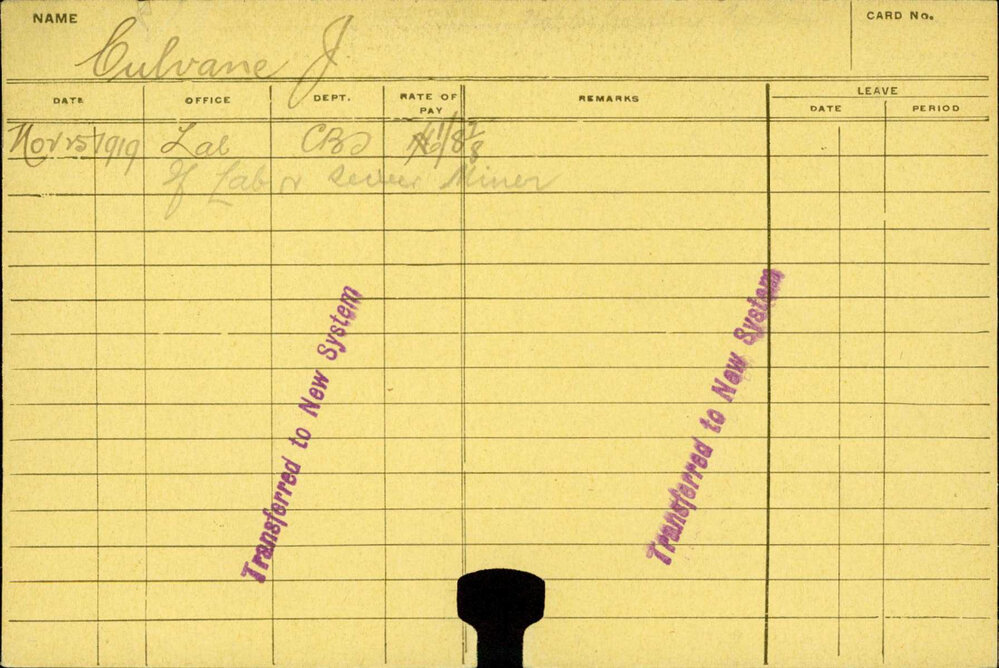 NAME
CARD No.
Culvane J.
DATE OFFICE DEPT. RATE OF PAY REMARKS LEAVE
DATE PERIOD
Nov 25 1919 Lab
Lab & Sewer Miner
Transferred to New System
Transferred to New System